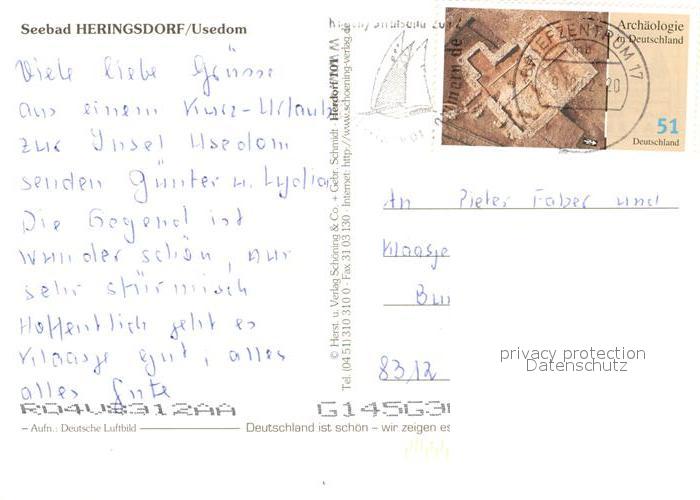 Seebad HERINGSDORF/Usedom
Viele liebe Grüsse
aus einem Kurz-Urlaub
zur Insel Usedom
senden Günter u. Lydia
Die Gegend ist
wunderschön, nur
sehr stürmisch
Hoffentlich geht es
Klaasje gut, alles
alles Gute
RD4U8312AA
– Aufn.: Deutsche Luftbild
© Herst. u. Verlag Schöning & Co. + Gebr. Schmidt
Tel. (04 51) 310 310 0 · Fax 31 03 130 · Internet: http://www.schoening-verlag.de
BRIEFZENTRUM 17
Archäologie
in Deutschland
51
Deutschland
An Pieter Faber und
Klaasje
83/12
privacy protection
Datenschutz
G145G3
Deutschland ist schön – wir zeigen es